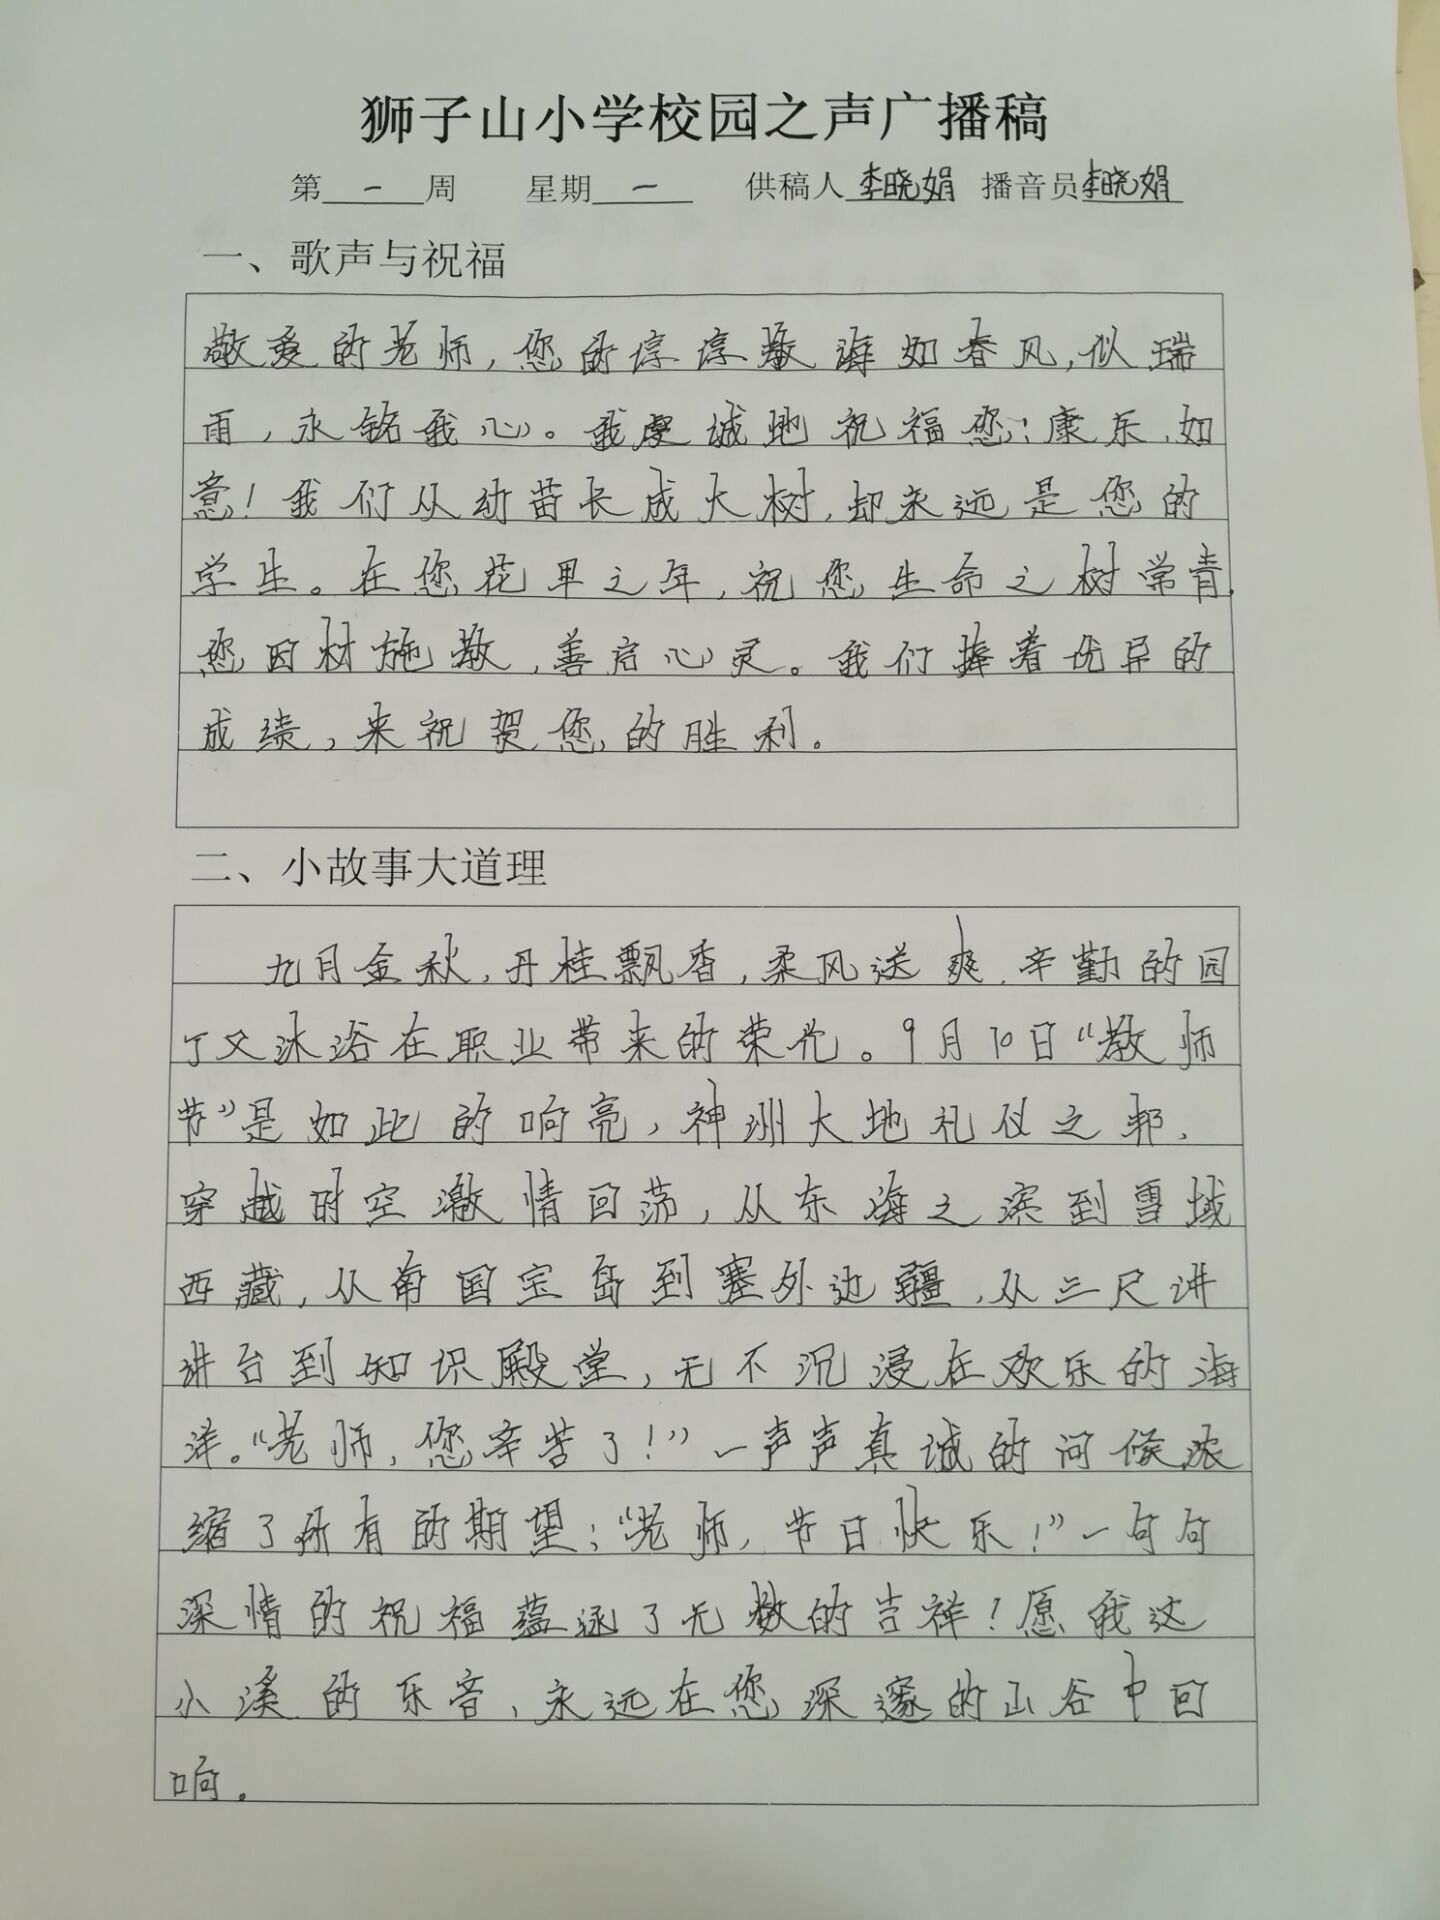 狮子山小学校园之声广播稿
第一周 星期一 供稿人李晓娟 播音员李晓娟
一、歌声与祝福
敬爱的老师,您的谆谆教诲如春风,似瑞
雨,永铭我心。我虔诚地祝福您:康乐,如
意!我们从幼苗长成大树,却永远是您的
学生。在您花里之年,祝您生命之树常青,
您因材施教,善启心灵。我们捧着优异的
成绩,来祝贺您的胜利。
二、小故事大道理
九月金秋,丹桂飘香,柔风送爽,辛勤的园
丁又沐浴在职业带来的荣光。9月10日“教师
节”是如此的响亮,神洲大地礼仪之邦,
穿越时空激情回荡,从东海之滨到雪域
西藏,从南国宝岛到塞外边疆,从三尺讲
讲台到知识殿堂,无不沉浸在欢乐的海
洋。“老师,您辛苦了!”一声声真诚的问候浓
缩了所有的期望;“老师,节日快乐!”一句句
深情的祝福蕴涵了无数的吉祥!愿我这
小溪的乐音,永远在您深邃的山谷中回
响。